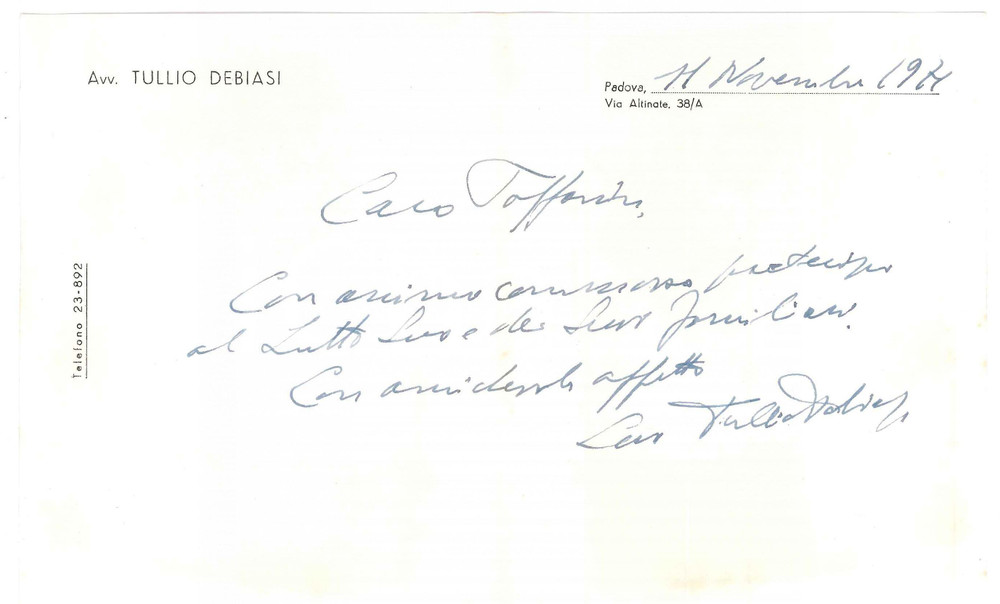 Avv. TULLIO DEBIASI
Padova, 11 Novembre 1971
Via Altinate, 38/A
Telefono 23-892
Caro Toffanin,
Con animo commosso partecipo
al Lutto Suo e dei Suoi famigliari.
Con amichevole affetto
Suo Tullio Debiasi